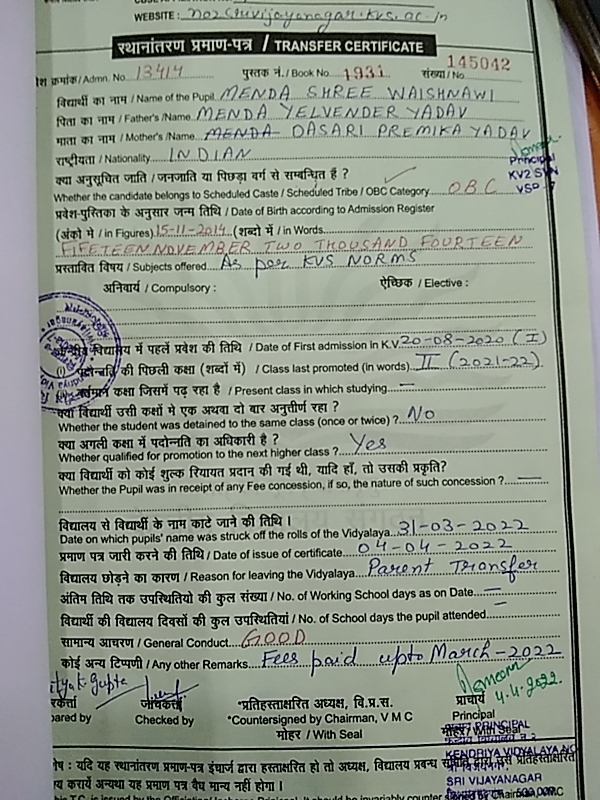 WEBSITE: no2srivijayanagar.kvs.ac.in
स्थानांतरण प्रमाण-पत्र / TRANSFER CERTIFICATE
क्रमांक/Admn. No. 13414 पुस्तक नं./Book No. 1931 संख्या/No. 145042
विद्यार्थी का नाम / Name of the Pupil MENDA SHREE WAISHNAWI
पिता का नाम / Father's/Name MENDA YELVENDER YADAV
माता का नाम / Mother's/Name MENDA DASARI PREMIKA YADAV
राष्ट्रीयता / Nationality INDIAN
Principal
KV2 SVN
VSP - 7
क्या अनुसूचित जाति / जनजाति या पिछड़ा वर्ग से सम्बन्धित हैं ?
Whether the candidate belongs to Scheduled Caste / Scheduled Tribe / OBC Category OBC
प्रवेश-पुस्तिका के अनुसार जन्म तिथि / Date of Birth according to Admission Register
(अंको मे / in Figures) 15-11-2014 (शब्दो में / in Words)
FIFETEEN NOVEMBER TWO THOUSAND FOURTEEN
प्रस्तावित विषय / Subjects offered As per KVS NORMS
अनिवार्य / Compulsory : ऐच्छिक / Elective :
विद्यालय में पहले प्रवेश की तिथि / Date of First admission in K.V. 20-08-2020 (I)
पदोन्नति की पिछली कक्षा (शब्दों में) / Class last promoted (in words) II (2021-22)
वर्तमान कक्षा जिसमें पढ़ रहा है / Present class in which studying —
क्या विद्यार्थी उसी कक्षों मे एक अथवा दो बार अनुत्तीर्ण रहा ?
Whether the student was detained to the same class (once or twice) ? No
क्या अगली कक्षा में पदोन्नति का अधिकारी है ?
Whether qualified for promotion to the next higher class ? Yes
क्या विद्यार्थी को कोई शुल्क रियायत प्रदान की गई थी, यादि हाँ, तो उसकी प्रकृति?
Whether the Pupil was in receipt of any Fee concession, if so, the nature of such concession ? —
विद्यालय से विद्यार्थी के नाम काटे जाने की तिथि ।
Date on which pupils' name was struck off the rolls of the Vidyalaya 31-03-2022
प्रमाण पत्र जारी करने की तिथि / Date of issue of certificate 04-04-2022
विद्यालय छोड़ने का कारण / Reason for leaving the Vidyalaya Parent Transfer
अंतिम तिथि तक उपस्थितियो की कुल संख्या / No. of Working School days as on Date —
विद्यार्थी की विद्यालय दिवसों की कुल उपस्थितियां / No. of School days the pupil attended —
सामान्य आचरण / General Conduct GOOD
कोई अन्य टिप्पणी / Any other Remarks Fees paid upto March-2022
Gupta
4.4.2022
जांचकर्ता *प्रतिहस्ताक्षरित अध्यक्ष, वि.प्र.स. प्राचार्य
ared by Checked by *Countersigned by Chairman, V M C Principal
मोहर / With Seal मोहर / With Seal
PRINCIPAL
KENDRIYA VIDYALAYA NO
SRI VIJAYANAGAR
: यदि यह स्थानांतरण प्रमाण-पत्र इंचार्ज द्वारा हस्ताक्षरित हो तो अध्यक्ष, विद्यालय प्रबन्ध समिति द्वारा उसे प्रतिहस्ताक्षरित
करायें अन्यथा यह प्रमाण पत्र वैध मान्य नहीं होगा ।